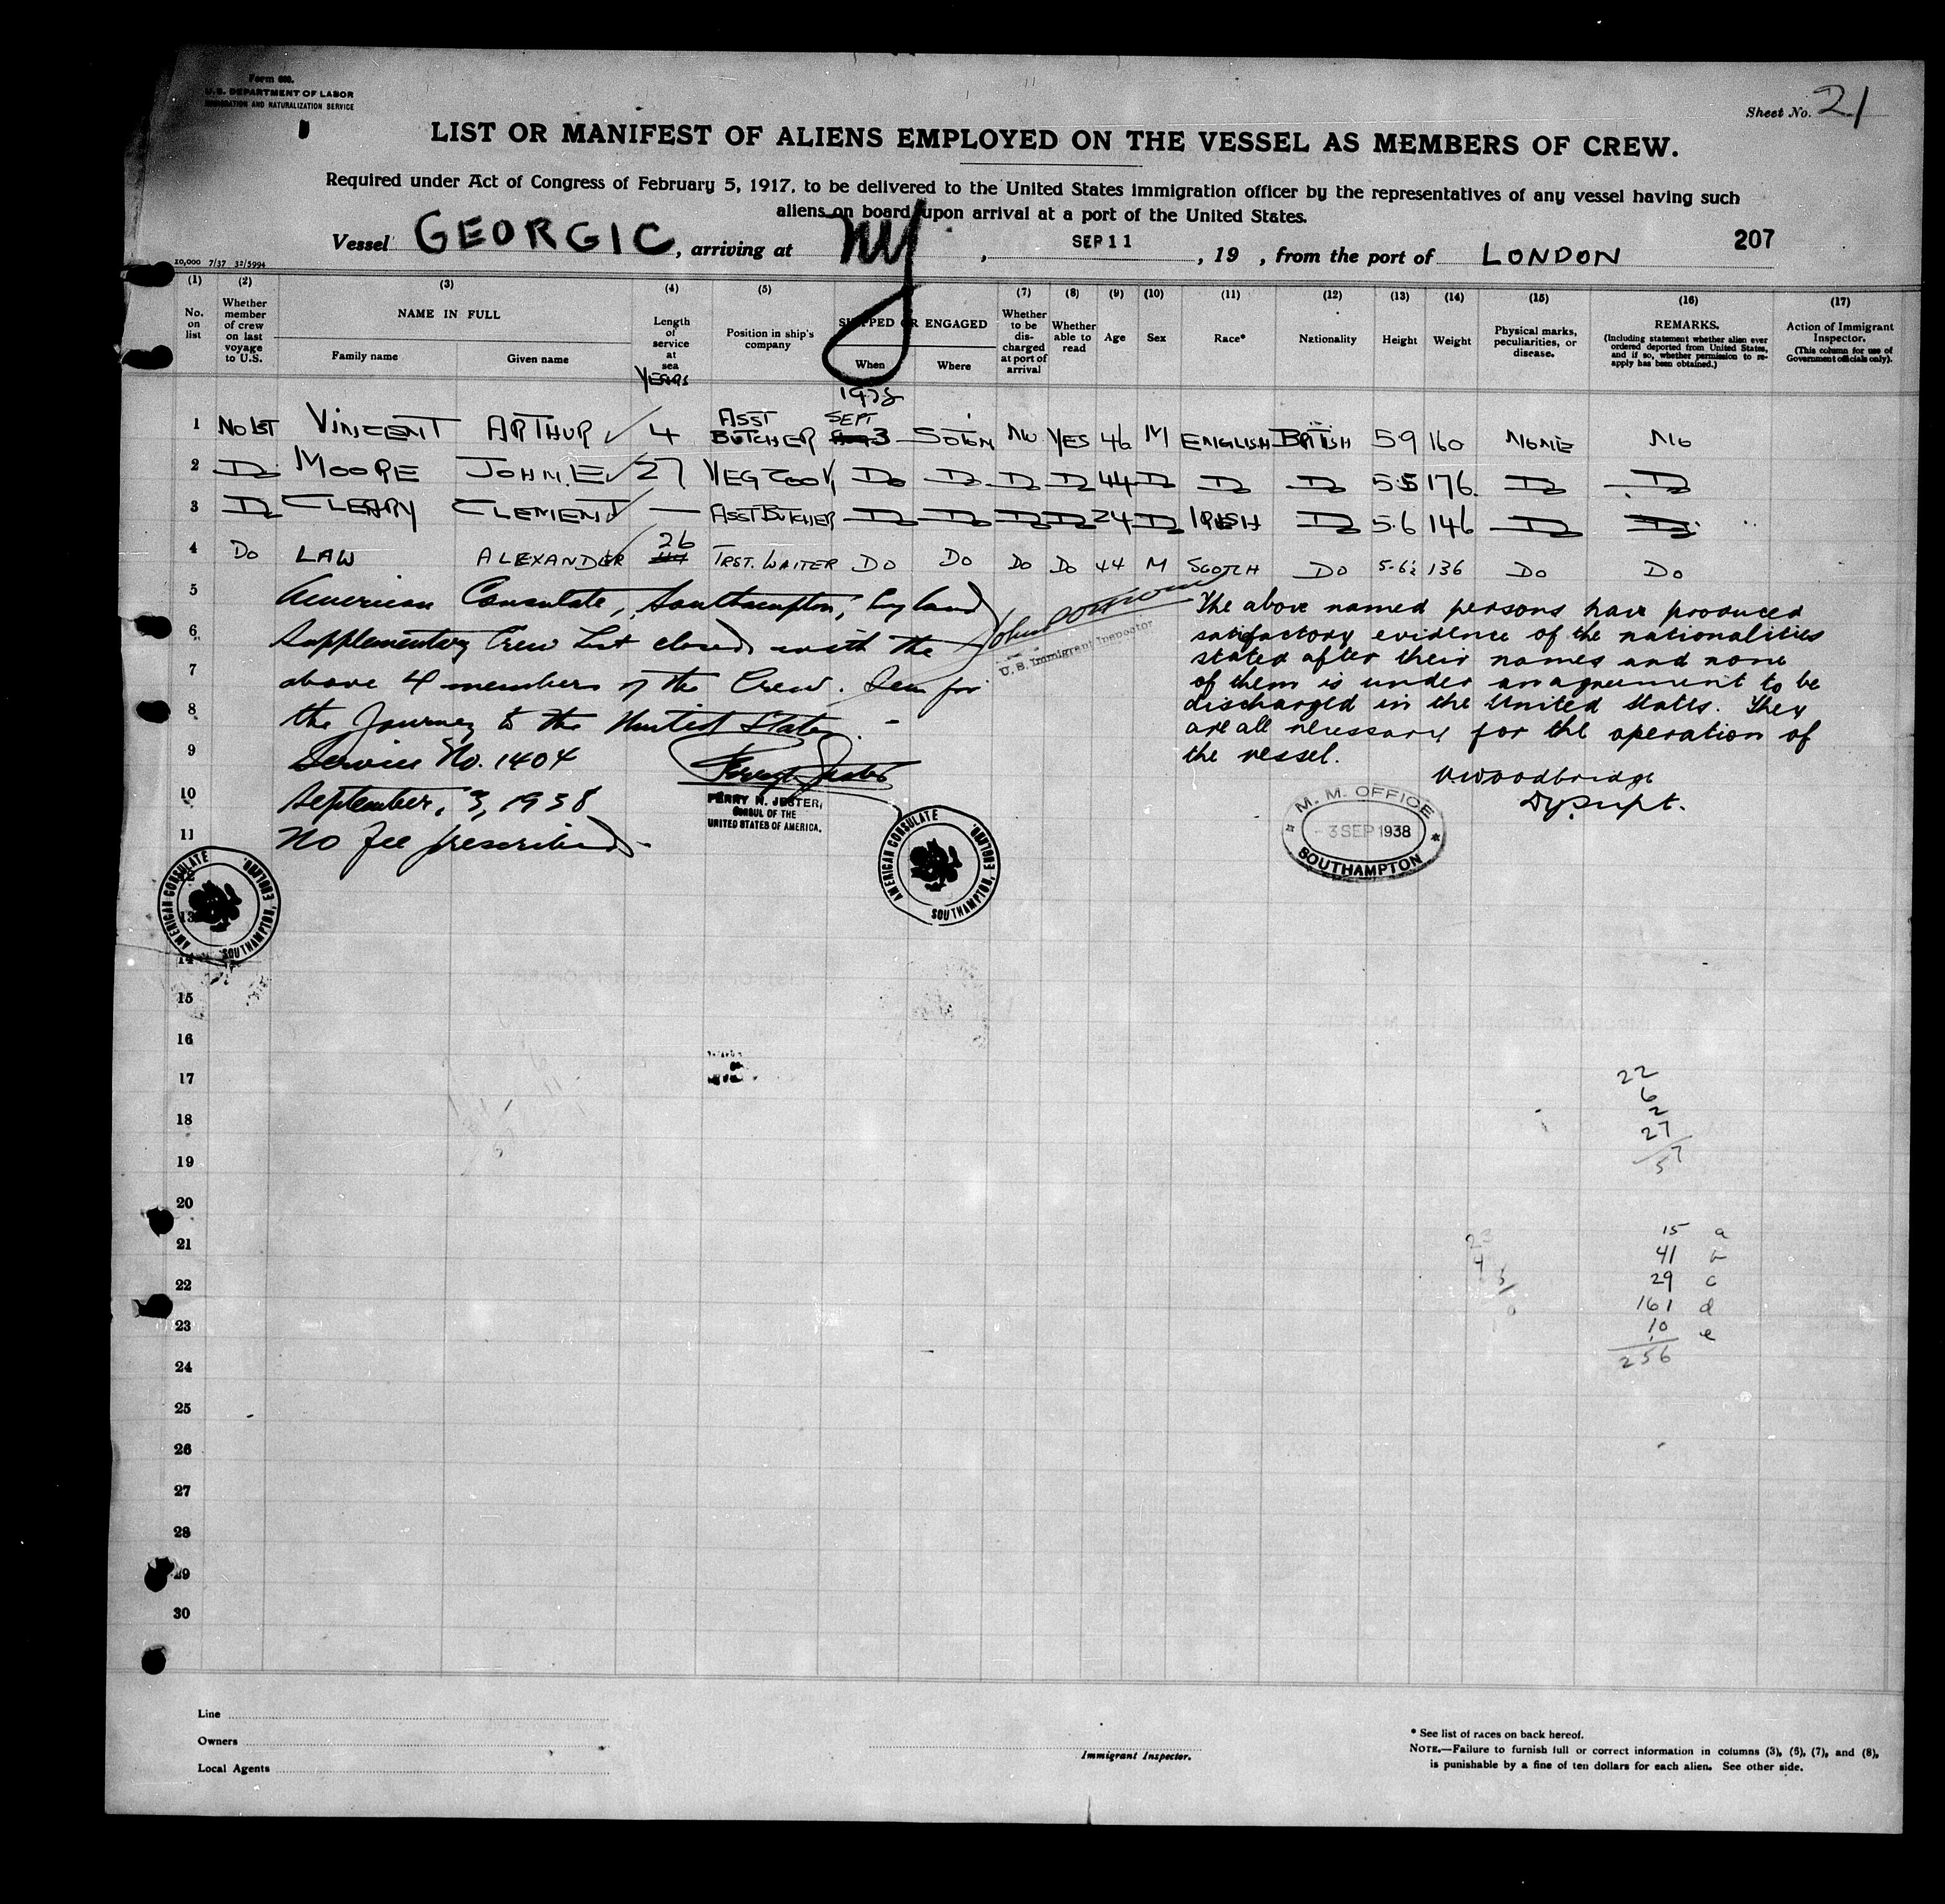 Form 689.
U.S. DEPARTMENT OF LABOR
IMMIGRATION AND NATURALIZATION SERVICE
Sheet No. 21
LIST OR MANIFEST OF ALIENS EMPLOYED ON THE VESSEL AS MEMBERS OF CREW.
Required under Act of Congress of February 5, 1917, to be delivered to the United States immigration officer by the representatives of any vessel having such
aliens on board upon arrival at a port of the United States.
Vessel GEORGIC, arriving at NY, SEP 11, 19 , from the port of LONDON
207
10,000 7/37 32/5994
(1) (2) (3) (4) (5) (7) (8) (9) (10) (11) (12) (13) (14) (15) (16) (17)
No. on list
Whether member of crew on last voyage to U.S.
NAME IN FULL
Family name Given name
Length of service at sea
YEARS
Position in ship's company
SHIPPED OR ENGAGED
When Where
Whether to be discharged at port of arrival
Whether able to read
Age
Sex
Race*
Nationality
Height
Weight
Physical marks, peculiarities, or disease.
REMARKS.
(Including statement whether alien ever ordered deported from United States, and if so, whether permission to re-apply has been obtained.)
Action of Immigrant Inspector.
(This column for use of Government officials only).
1938
1 No 1ST VINCENT ARTHUR 4 ASST BUTCHER SEPT 3 SOTON NO YES 46 M ENGLISH BRITISH 5 9 160 NONE NO
2 Do MOORE JOHN.E 27 VEG COOK Do Do Do Do 44 Do Do Do 5·5 176. Do Do
3 Do CLEARY CLEMENT — ASST BUTCHER Do Do Do Do 24 Do IRISH Do 5·6 146 Do Do
4 Do LAW ALEXANDER 26 TRST. WAITER Do Do Do Do 44 M SCOTCH Do 5-6½ 136 Do Do
5 American Consulate, Southampton, England
6 Supplementary Crew List closed with the
7 above 4 members of the Crew. Seen for
8 the Journey to the United States. -
9 Service No. 1404
10 September, 3, 1938
11 No fee prescribed -
U. S. Immigrant Inspector
The above named persons have produced
satisfactory evidence of the nationalities
stated after their names and none
of them is under an agreement to be
discharged in the United States. They
are all necessary for the operation of
the vessel.
V. Woodbridge
Dy. Supt.
PERRY N. JESTER,
CONSUL OF THE
UNITED STATES OF AMERICA.
AMERICAN CONSULATE SOUTHAMPTON, ENGLAND.
M. M. OFFICE
3 SEP 1938
SOUTHAMPTON
AMERICAN CONSULATE SOUTHAMPTON, ENGLAND.
13
14
15
16
17
18
19
20
21
22
23
24
25
26
27
28
29
30
22
6
2
27
57
15 a
41 b
29 c
161 d
10 e
256
23
4
Line
Owners
Local Agents
Immigrant Inspector.
* See list of races on back hereof.
NOTE.—Failure to furnish full or correct information in columns (3), (5), (7), and (8),
is punishable by a fine of ten dollars for each alien. See other side.